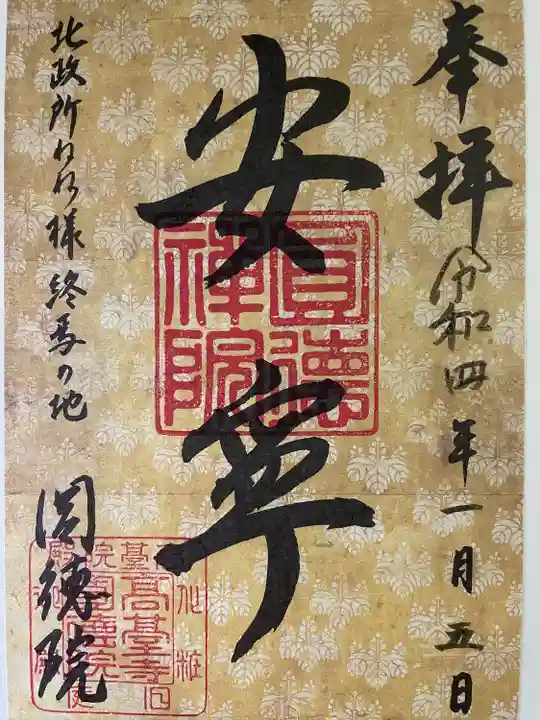 奉拝
令和四年一月五日
安寧
圓徳禅院
北政所ねね様終焉の地
圓徳院
高台寺